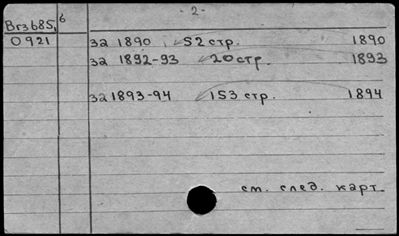 - 2 -
Вгзб85, 6
0921 за 1890 52 стр. 1890
за 1892-93 20 стр. 1893
за 1893-94 153 стр. 1894
см. след. карт